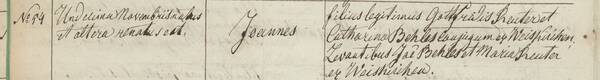 No 54
Undecima Novembris natus
et altera renatus est.
Joannes
filius legitimus Gothfridis Preuter et
Catharina Behles conjugum ex Weiskirchen.
Levantibus Joê Behles et Maria Preuter
ex Weiskirchen.